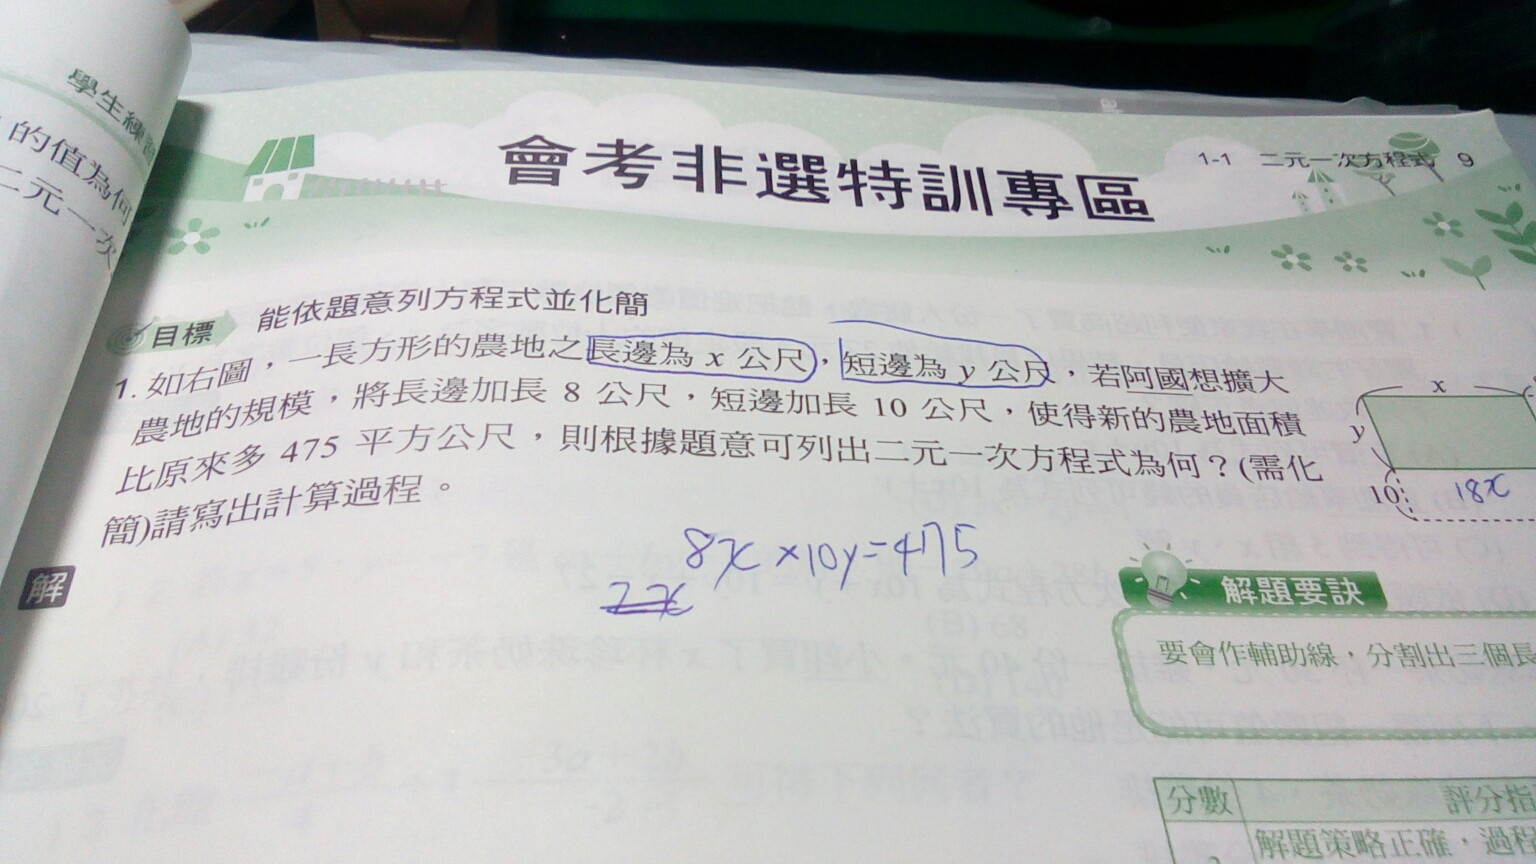 學生練習
的值為何
二元一次
1-1 二元一次方程式 9
會考非選特訓專區
目標 能依題意列方程式並化簡
1. 如右圖，一長方形的農地之長邊為 x 公尺，短邊為 y 公尺，若阿國想擴大
農地的規模，將長邊加長 8 公尺，短邊加長 10 公尺，使得新的農地面積
比原來多 475 平方公尺，則根據題意可列出二元一次方程式為何？(需化
簡)請寫出計算過程。
x
y
10
18x
解
8x×10y=475
解題要訣
要會作輔助線，分割出三個長
分數 評分指
解題策略正確，過程